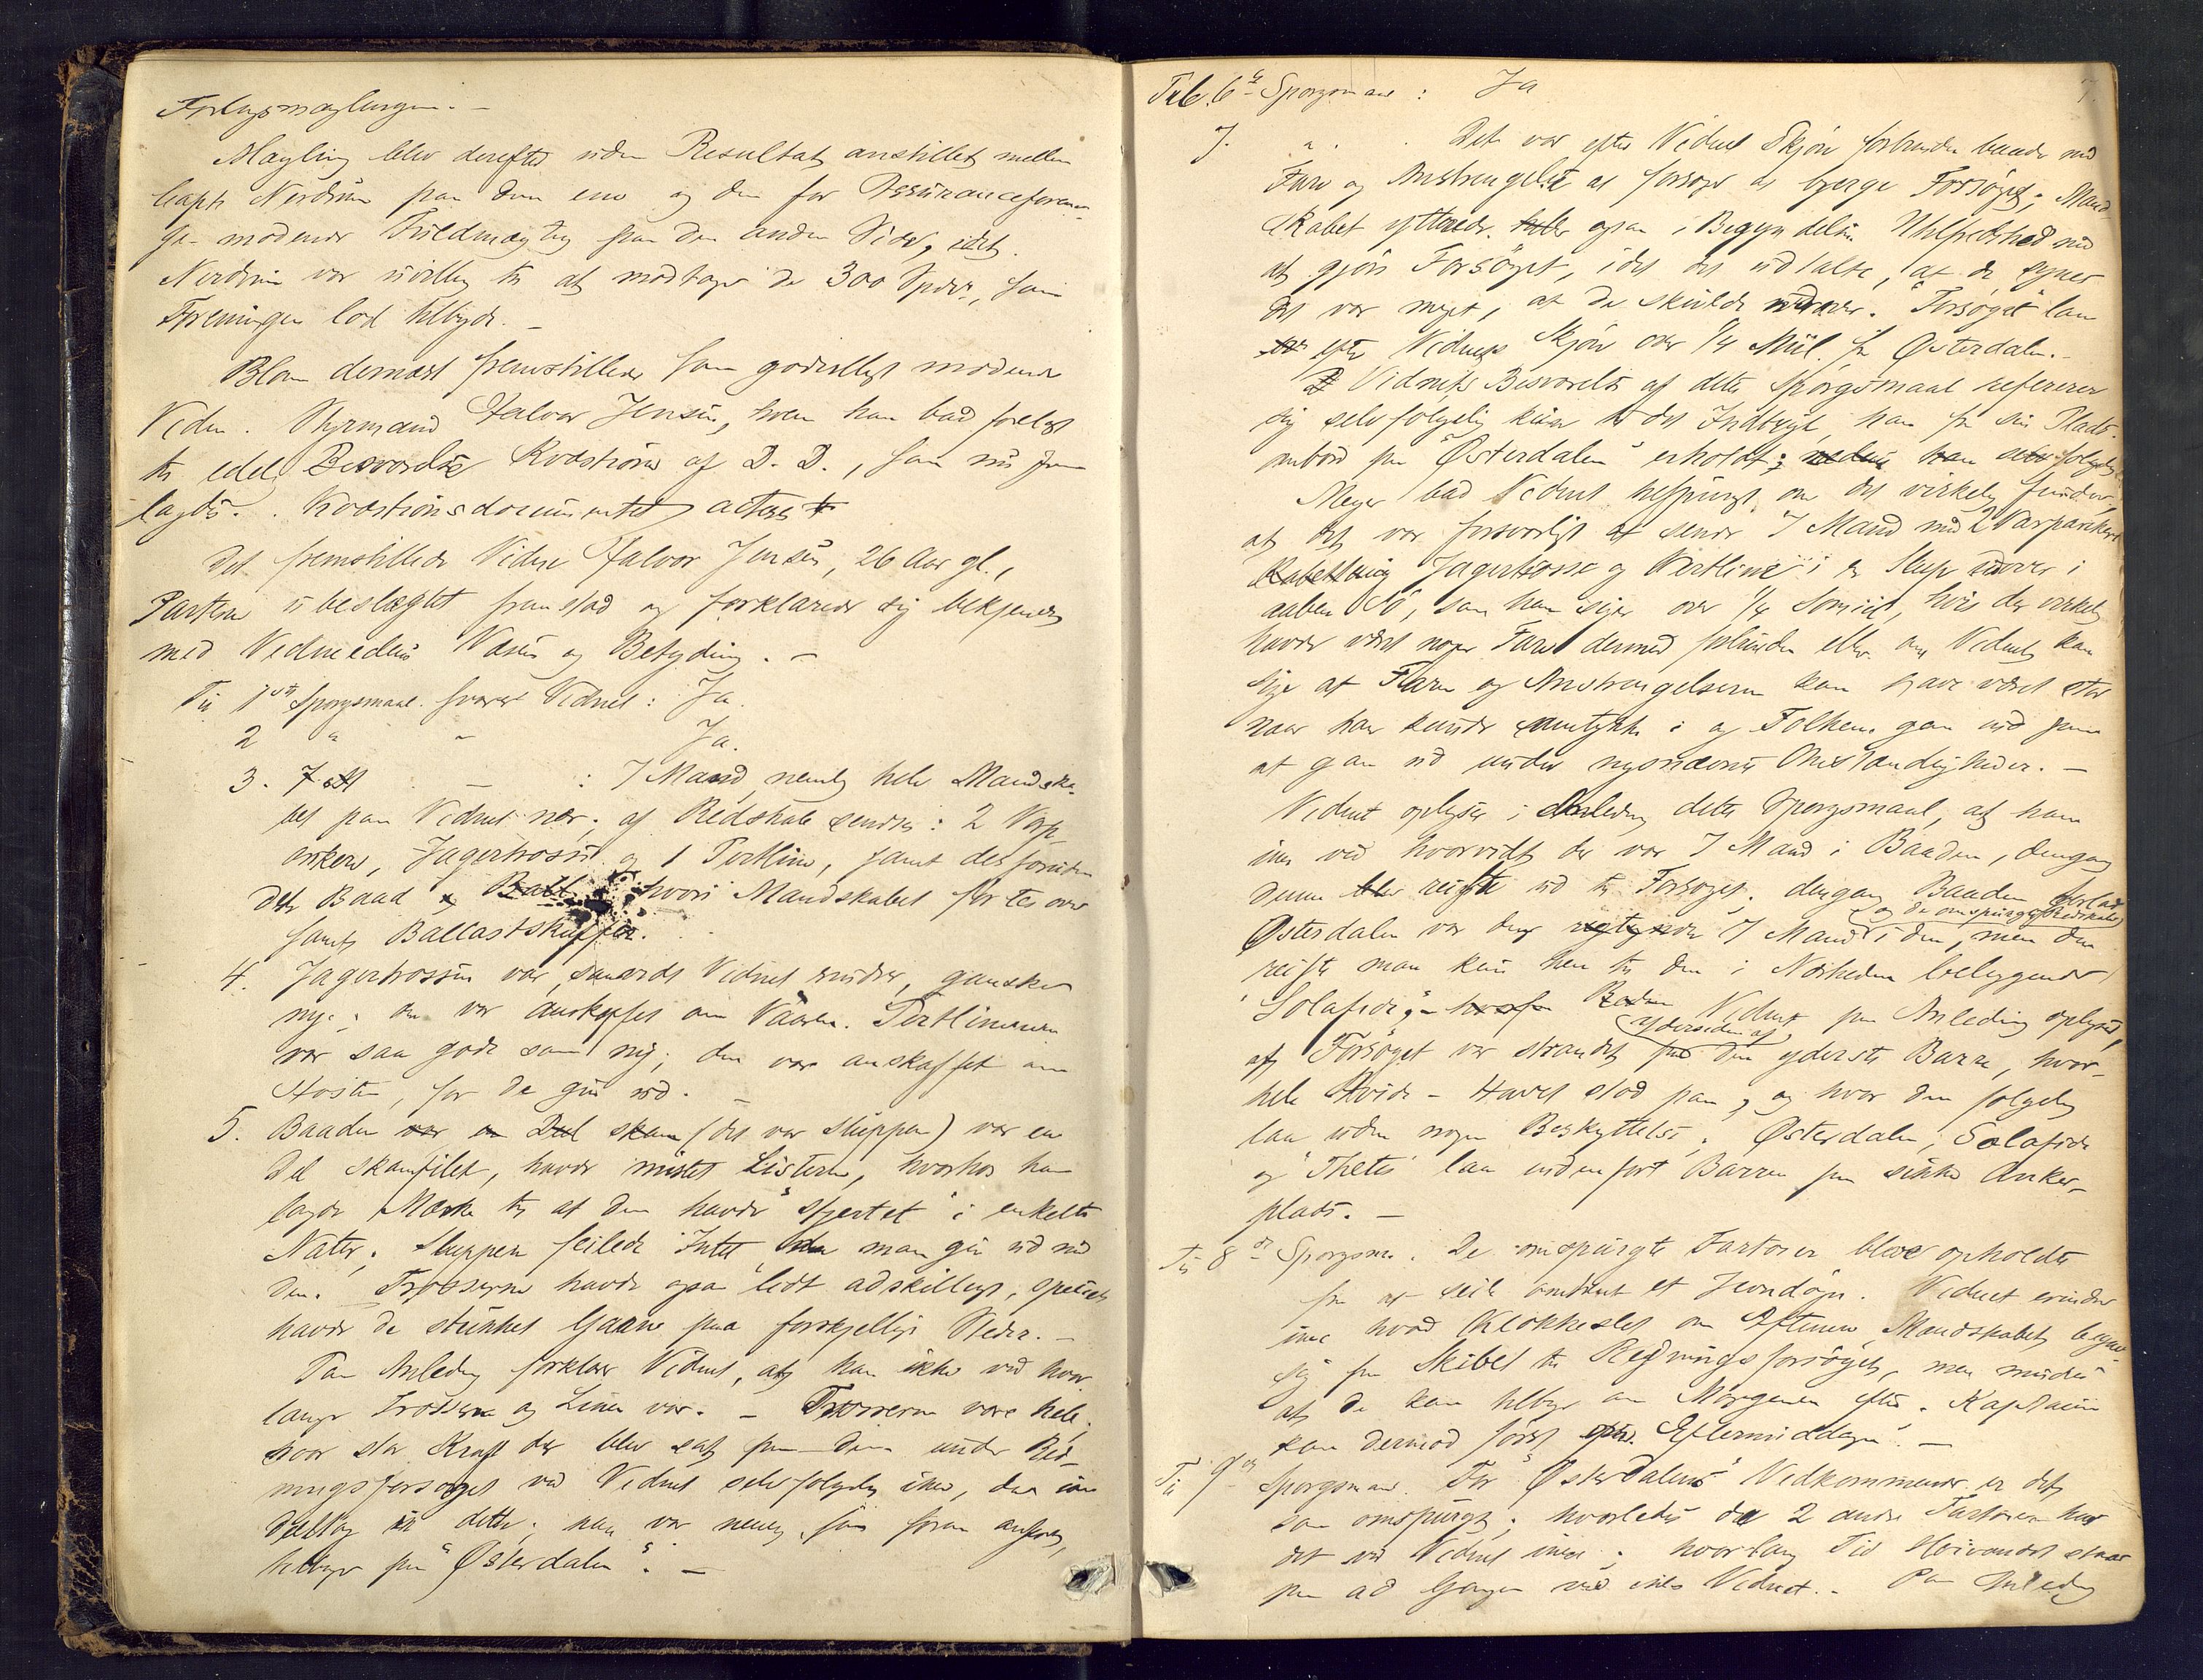 Forligsmæglingen. –
Mægling blev derefter uden Resultat anstillet mellem
Capt. Nordrum paa den ene og den for Assuranceforenin-
ge mødende Fuldmægtig paa den anden Side, idet
Nordrum var uvillig til at modtage de 300 Spdlr, som
Foreningen lod tilbyde. –
Blom dernæst fremstillede som godvilligt mødende
Vidne Styrmand Halvor Jensen, hvem han bad forelagt
til edel. Besvarelse Kvæstioner af D. D., som nu frem
lagdes. Kvæstionsdocumentet acteres
Det fremstillede Vidne Halvor Jensen, 26 Aar gl.,
Parterne ubeslægtet fremstod og forklarede sig bekjendt
med Vidneedens Væsen og Betydning. –
Til 1ste Spørgsmaal svarer Vidnet: Ja.
2 " " Ja.
3. – : 7 Mand nemlig hele Mandska-
bet paa Vidnet nær; af Redskab sendtes: 2 Varp-
ankere, Jagertrossen og 1 Pertline, samt desforuden
det Baad hvori Mandskabet førtes over
samt Ballastskuffer.
4. Jagertrossen var, saavidt Vidnet erindrer, ganske
ny; den var anskaffet om Vaaren. Pertlinen
var saa godt som ny; den var anskaffet om
Høsten, før de gik ud. –
5. Baaden (det var Sluppen) var en
Del skamfilet, havde mistet Listerne, hvorhos han
lagde Mærke til at den havde "stjertet" i enkelte
Nater; Sluppen feilede Intet da man gik ud med
den. Trosserne havde ogsaa lidt adskilligt, specielt
havde de sprukket Gaarne paa forskjellige Steder. –
Paa Anledng forklarer Vidnet, at han ikke ved hvor
lange Trosserne og Linen var. – Trosserne vare hele;
hvor stor Kraft der blev sat paa dem under Red-
ningsforsøget ved Vidnet selvfølgelig ikke, da han
Deltog i dette; han var nemlig, som foran anført,
tilbage paa "Østerdalen". –
7.
Til 6te Spørgsmaal: Ja
7. " Det var efter Vidnets Skjøn forbundet baade med
Fare og Anstrengelse at forsøge at bjerge Forsøget; Mand-
skabet yttrede ogsaa i Begyndelsen Utilfredshed med
at gjøre Forsøget, idet det udtalte, at de synes
det var meget, at de skulde "Forsøget" laa
efter Vidnets Skjøn over 1/4 Miil fra Østerdalen. –
Vidnets Besvarelse af dette Spørgsmaal refererer
sig selvfølgelig kun til det Indtryk, han fra sin Plads
ombord paa "Østerdalen" erholdt;
Meyer bad Vidnet tilspurgt om det virkelig finder,
at det var forsvarligt at sende 7 Mand med 2 Varpankere
Jagertrosse og Pertline i en Slup udover i
aaben Sø, som han siger over 1/4 Sømiil, hvis der virkelig
havde været nogen Fare dermed forbunden eller om Vidnet kan
sige at Faren og Anstrengelserne kan have været stor
naar han kunde samtykke i og Folkene gaa ind paa
at gaa ud under nysnævnte Omstændigheder. –
Vidnet oplyser i Anledng dette Spørgsmaal, at han
ikke ved hvorvidt der var 7 Mand i Baaden, dengang
denne reiste ud til Forsøget; dengang Baaden forlod
Østerdalen var der 7 Mand og de omspurgte Redskaber i den, men den
reiste man kun hen til den i Nærheden beliggende
"Solafide"; Vidnet paa Anledning oplyser,
at Forsøget var strandet ydersiden af den yderste Barre, hvor
hele Hvide-Havet stod paa, og hvor den følgelig
laa uden nogen Beskyttelse; Østerdalen, Solafide
og "Thetis" laa indenfort Barren paa sikker Anker-
plads. –
Til 8de Spørgsm: De omspurgte Fartøier bleve opholdte
fra at seile omtrent et Jevndøgn. Vidnet erindrer
ikke hvad Klokkeslet om Aftenen Mandskabet begav
sig fra Skibet til Redningsforsøget, men mindes
at de kom tilbage om Morgenen efter. Kaptainen
kom derimod først Eftermiddagen. –
Til 9de Spørgsmaal. For "Østerdalens" Vedkommende er det
som omspurgt; hvorledes de 2 andre Fartøier har
det ved Vidnet ikke; hvorlang Tid Høivandet staar
paa ad Gangen ved ikke Vidnet. – Paa Anledng